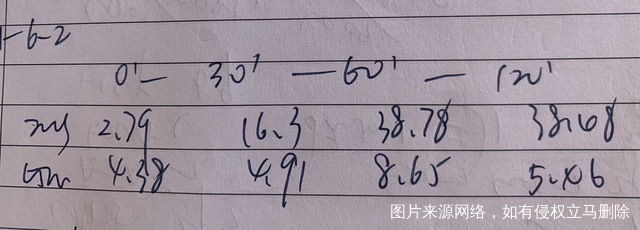 1-6-2
0' — 30' — 60' — 120'
ins 2.79 16.3 38.78 38.68
Glu 4.38 4.91 8.65 5.06
图片来源网络，如有侵权立马删除